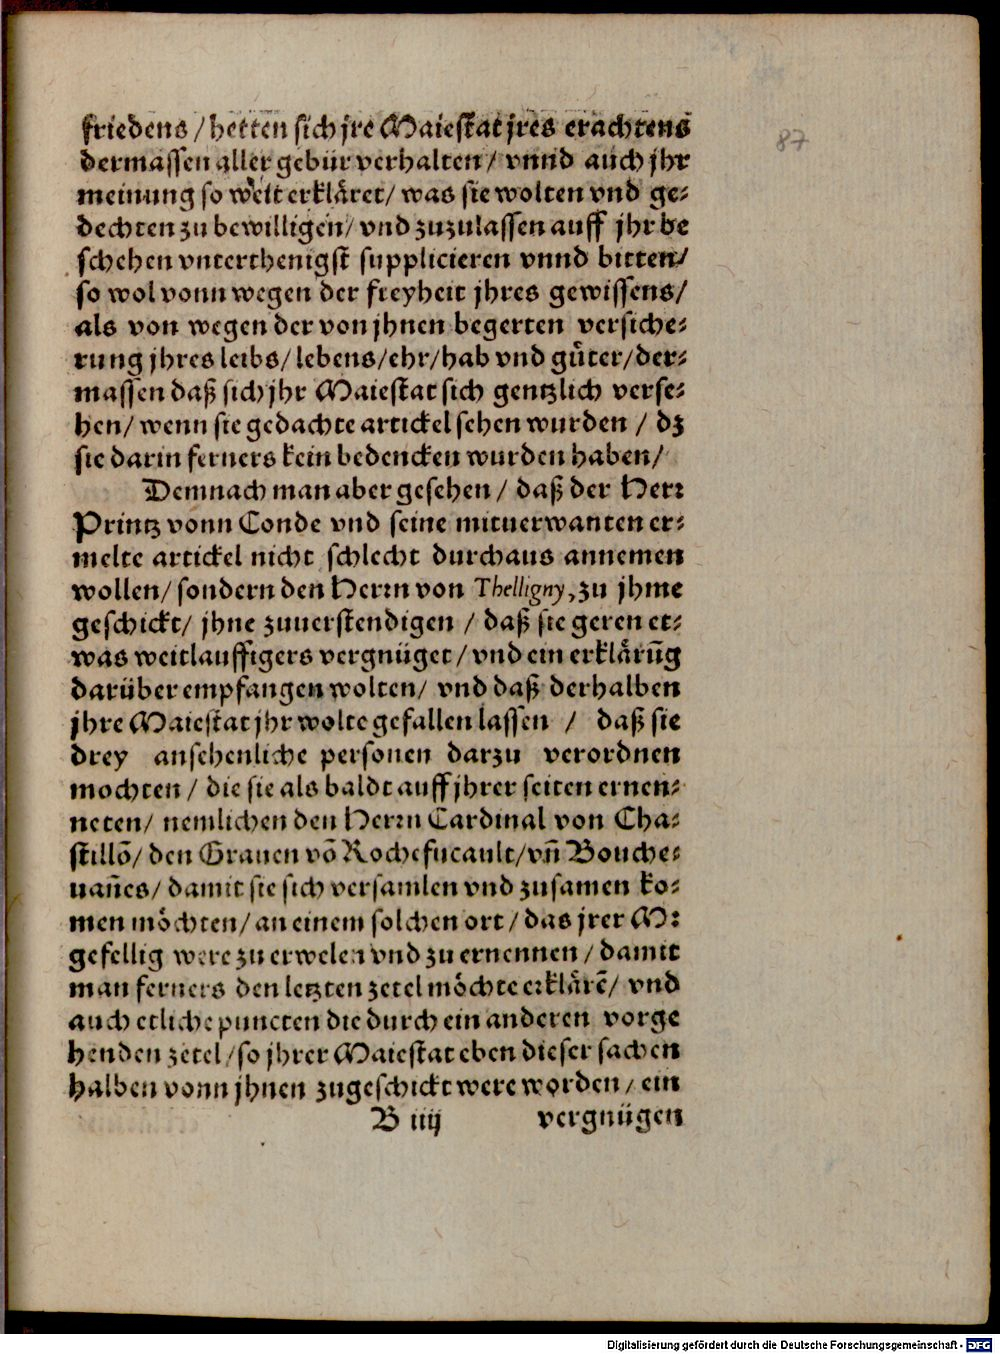 friedens / hetten sich jre Maiestat jres erachtens
dermassen aller gebür verhalten / vnnd auch jhr
meinung so weit erkläret / was sie wolten vnd ge⸗
dechten zu bewilligen / vnd zuzulassen auff jhr be
schehen vnterthenigst supplicieren vnnd bitten /
so wol vonn wegen der freyheit jhres gewissens /
als von wegen der von jhnen begerten versiche⸗
rung jhres leibs / lebens / ehr / hab vnd gůter / der⸗
massen daß sich jhr Maiestat sich gentzlich verse⸗
hen / wenn sie gedachte artickel sehen wurden / dz
sie darin ferners kein bedencken wurden haben /
Demnach man aber gesehen / daß der Herꝛ
Printz vonn Conde vnd seine mituerwanten er⸗
melte artickel nicht schlecht durchaus annemen
wollen / sondern den Herꝛn von Thelligny, zu jhme
geschickt / jhne zuuerstendigen / daß sie geren et⸗
was weitlauffigers vergnüget / vnd ein erklärūg
darüber empfangen wolten / vnd daß derhalben
jhre Maiestat jhr wolte gefallen lassen / daß sie
drey ansehenliche personen darzu verordnen
mochten / die sie als baldt auff jhrer seiten ernen⸗
neten / nemlichen den Herꝛn Cardinal von Cha⸗
stillō / den Grauen vō Rochefucault / vn̄ Bouche⸗
uan̄es / damit sie sich versamlen vnd zusamen ko⸗
men möchten / an einem solchen ort / das jrer M:
gefellig were zu erwelen vnd zu ernennen / damit
man ferners den letzten zetel möchte erklärē / vnd
auch etliche puncten die durch ein anderen vorge
henden zetel / so jhrer Maiestat eben dieser sachen
halben vonn jhnen zugeschickt were worden / ein
B iiij vergnügen
87
Digitalisierung gefördert durch die Deutsche Forschungsgemeinschaft - DFG